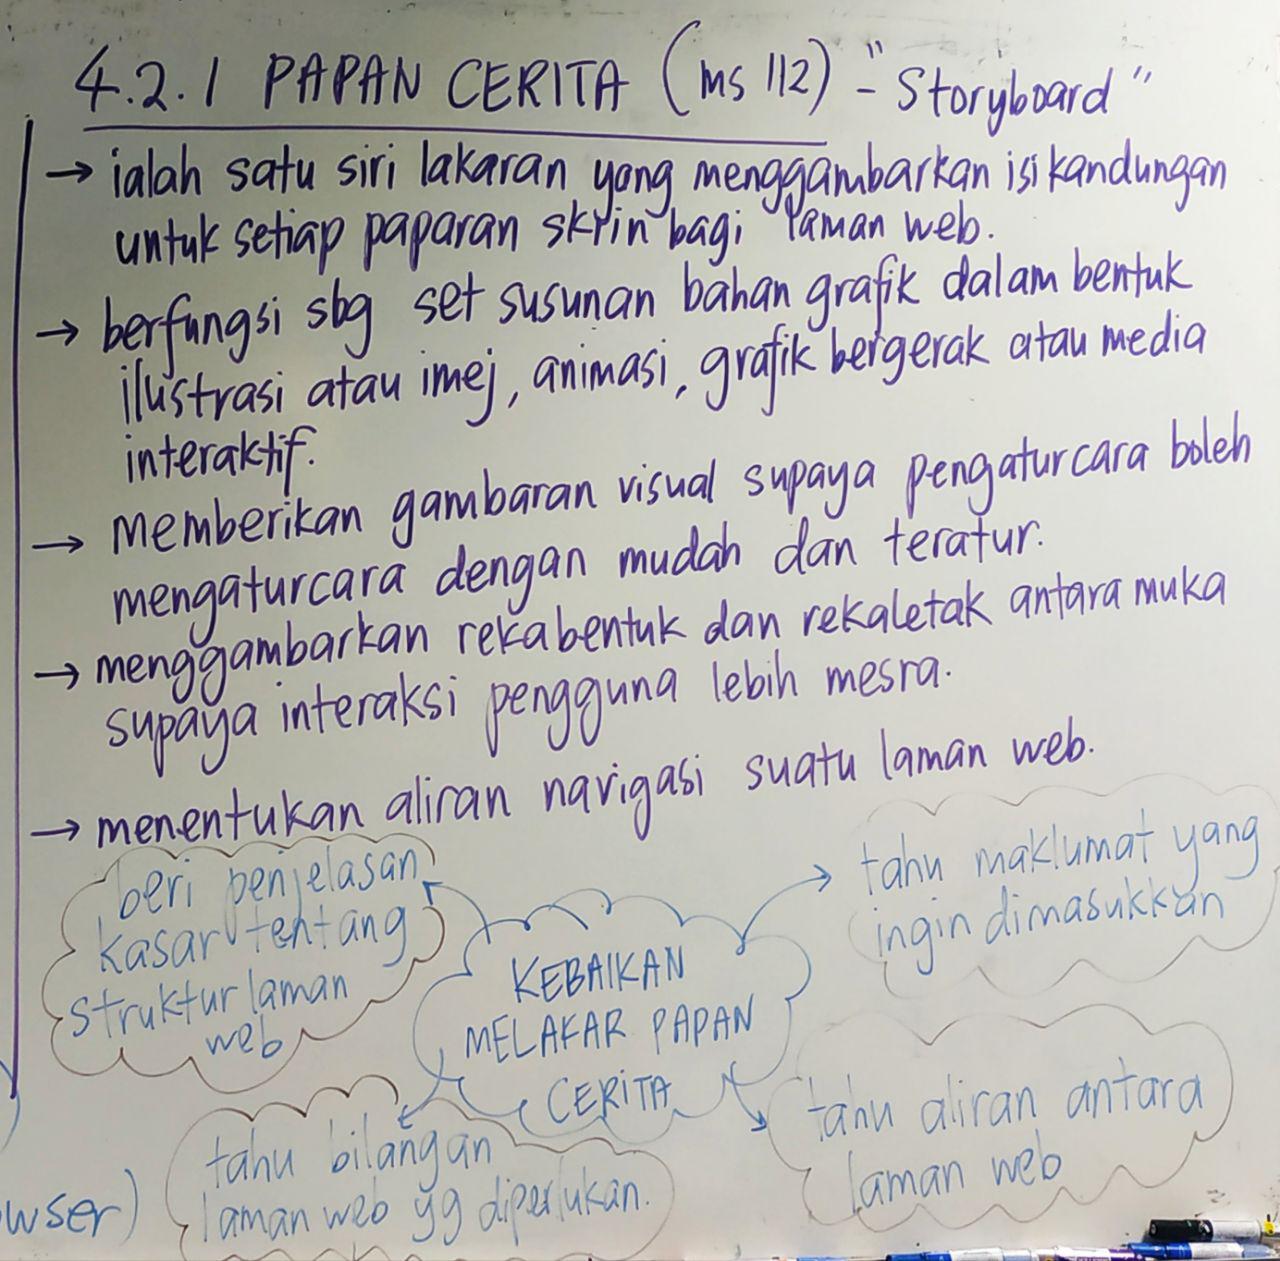 4.2.1 PAPAN CERITA (ms 112) - "Storyboard"
→ ialah satu siri lakaran yang menggambarkan isi kandungan
untuk setiap paparan skrin bagi laman web.
→ berfungsi sbg set susunan bahan grafik dalam bentuk
ilustrasi atau imej, animasi, grafik bergerak atau media
interaktif.
→ memberikan gambaran visual supaya pengaturcara boleh
mengaturcara dengan mudah dan teratur.
→ menggambarkan rekabentuk dan rekaletak antara muka
supaya interaksi pengguna lebih mesra.
→ menentukan aliran navigasi suatu laman web.
beri penjelasan
kasar tentang
struktur laman
web
tahu maklumat yang
ingin dimasukkan
KEBAIKAN
MELAKAR PAPAN
CERITA
tahu bilangan
laman web yg diperlukan.
tahu aliran antara
laman web
wser)